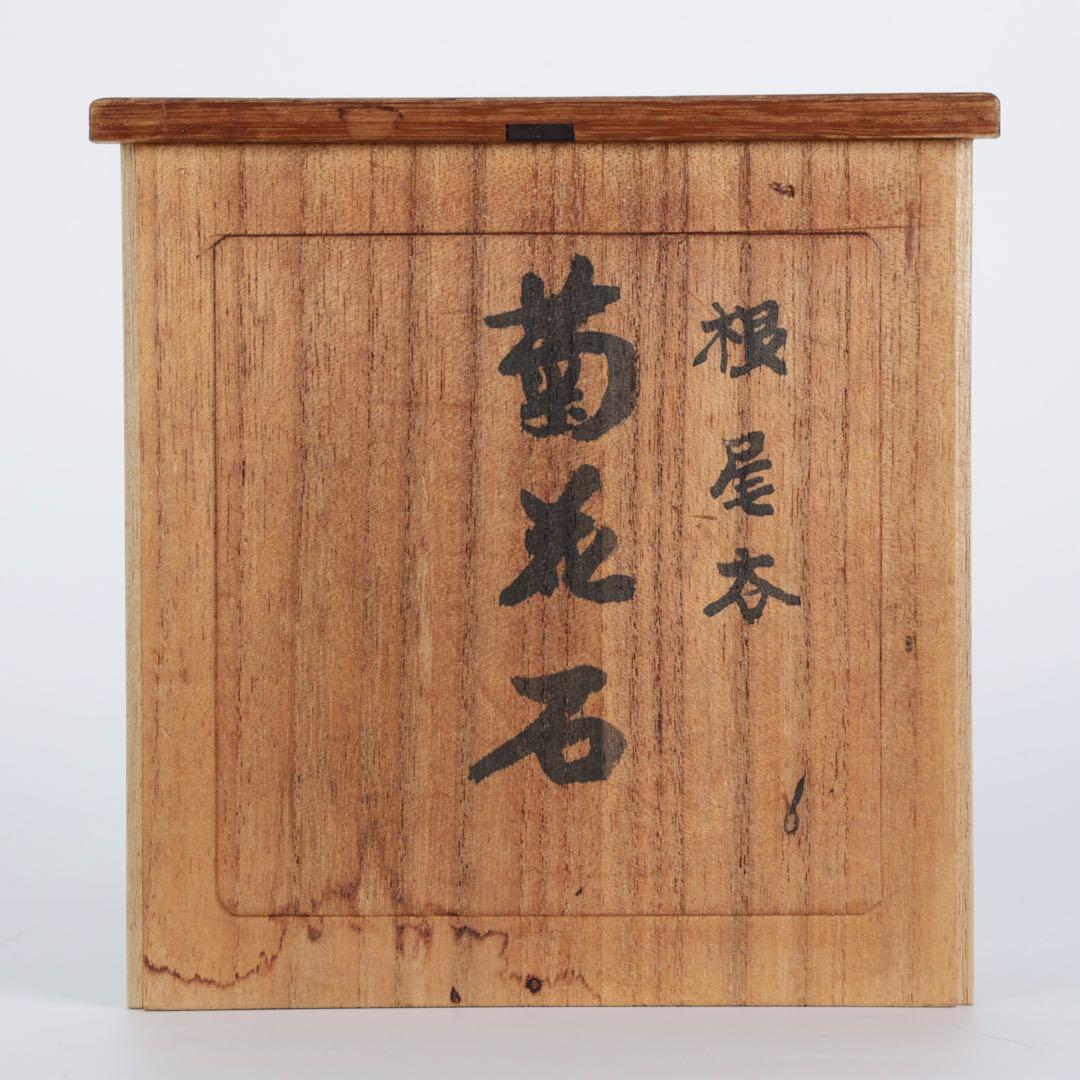 根尾谷
菊花石